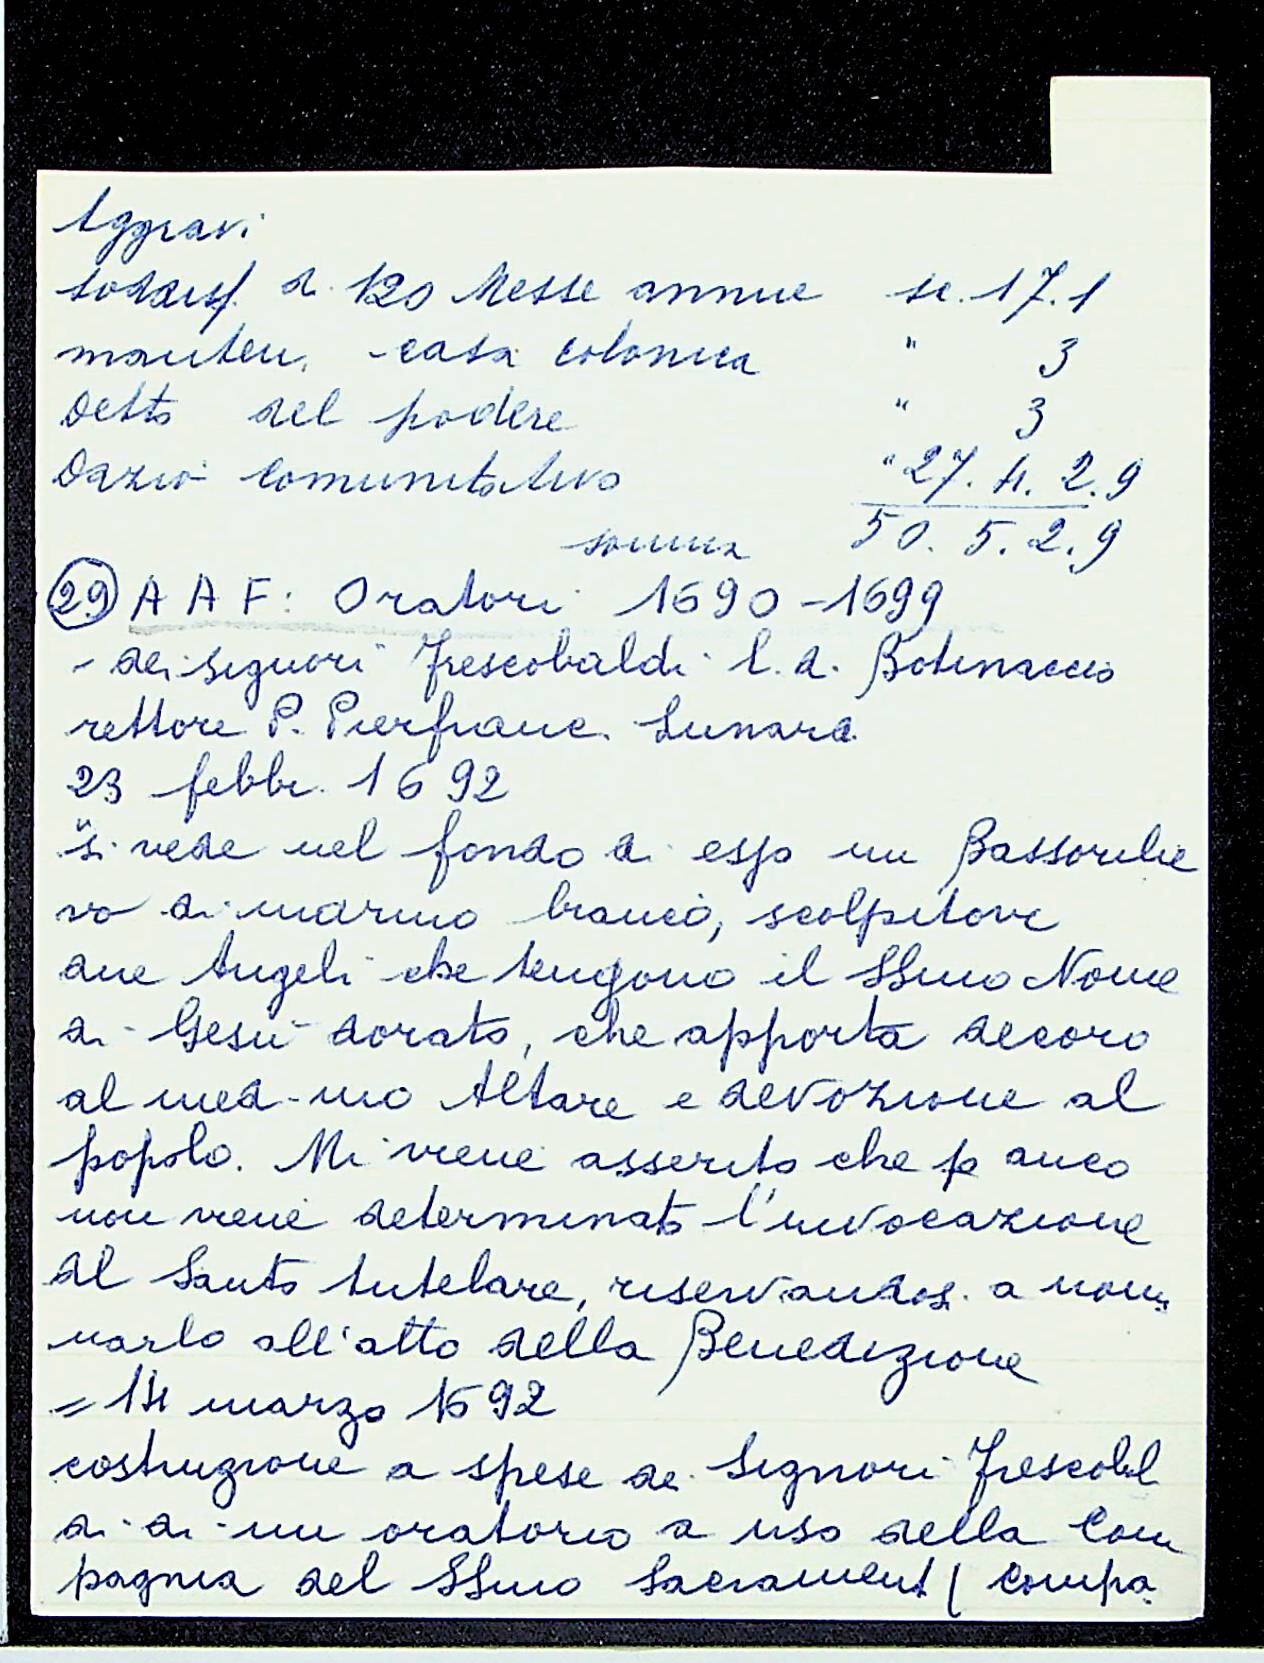 Aggravi
sodisf. di 120 Messe annue sc. 17.1
manten. casa colonica " 3
Detto del podere " 3
Dazio comunitativo " 27. 4. 2. 9
somma 50. 5. 2. 9
(29) A A F: Oratori 1690-1699
- dei signori Frescobaldi l. d. Botinaccio
rettore P. Pierfranc.
23 febbr. 1692
"si vede nel fondo di esso un Bassorilie
vo di marmo bianco, scolpitovi
due Angeli che tengono il SSmo Nome
di Gesù dorato, che apporta decoro
al med-mo Altare e devozione al
popolo. Mi viene asserito che p anco
non viene determinato l'invocazione
al Santo tutelare, riservandosi a nomi
narlo all'atto della Benedizione
= 14 marzo 1692
costruzione a spese dei Signori Frescobal
di di un oratorio a uso della Com
pagnia del SSmo Sacrament (compa